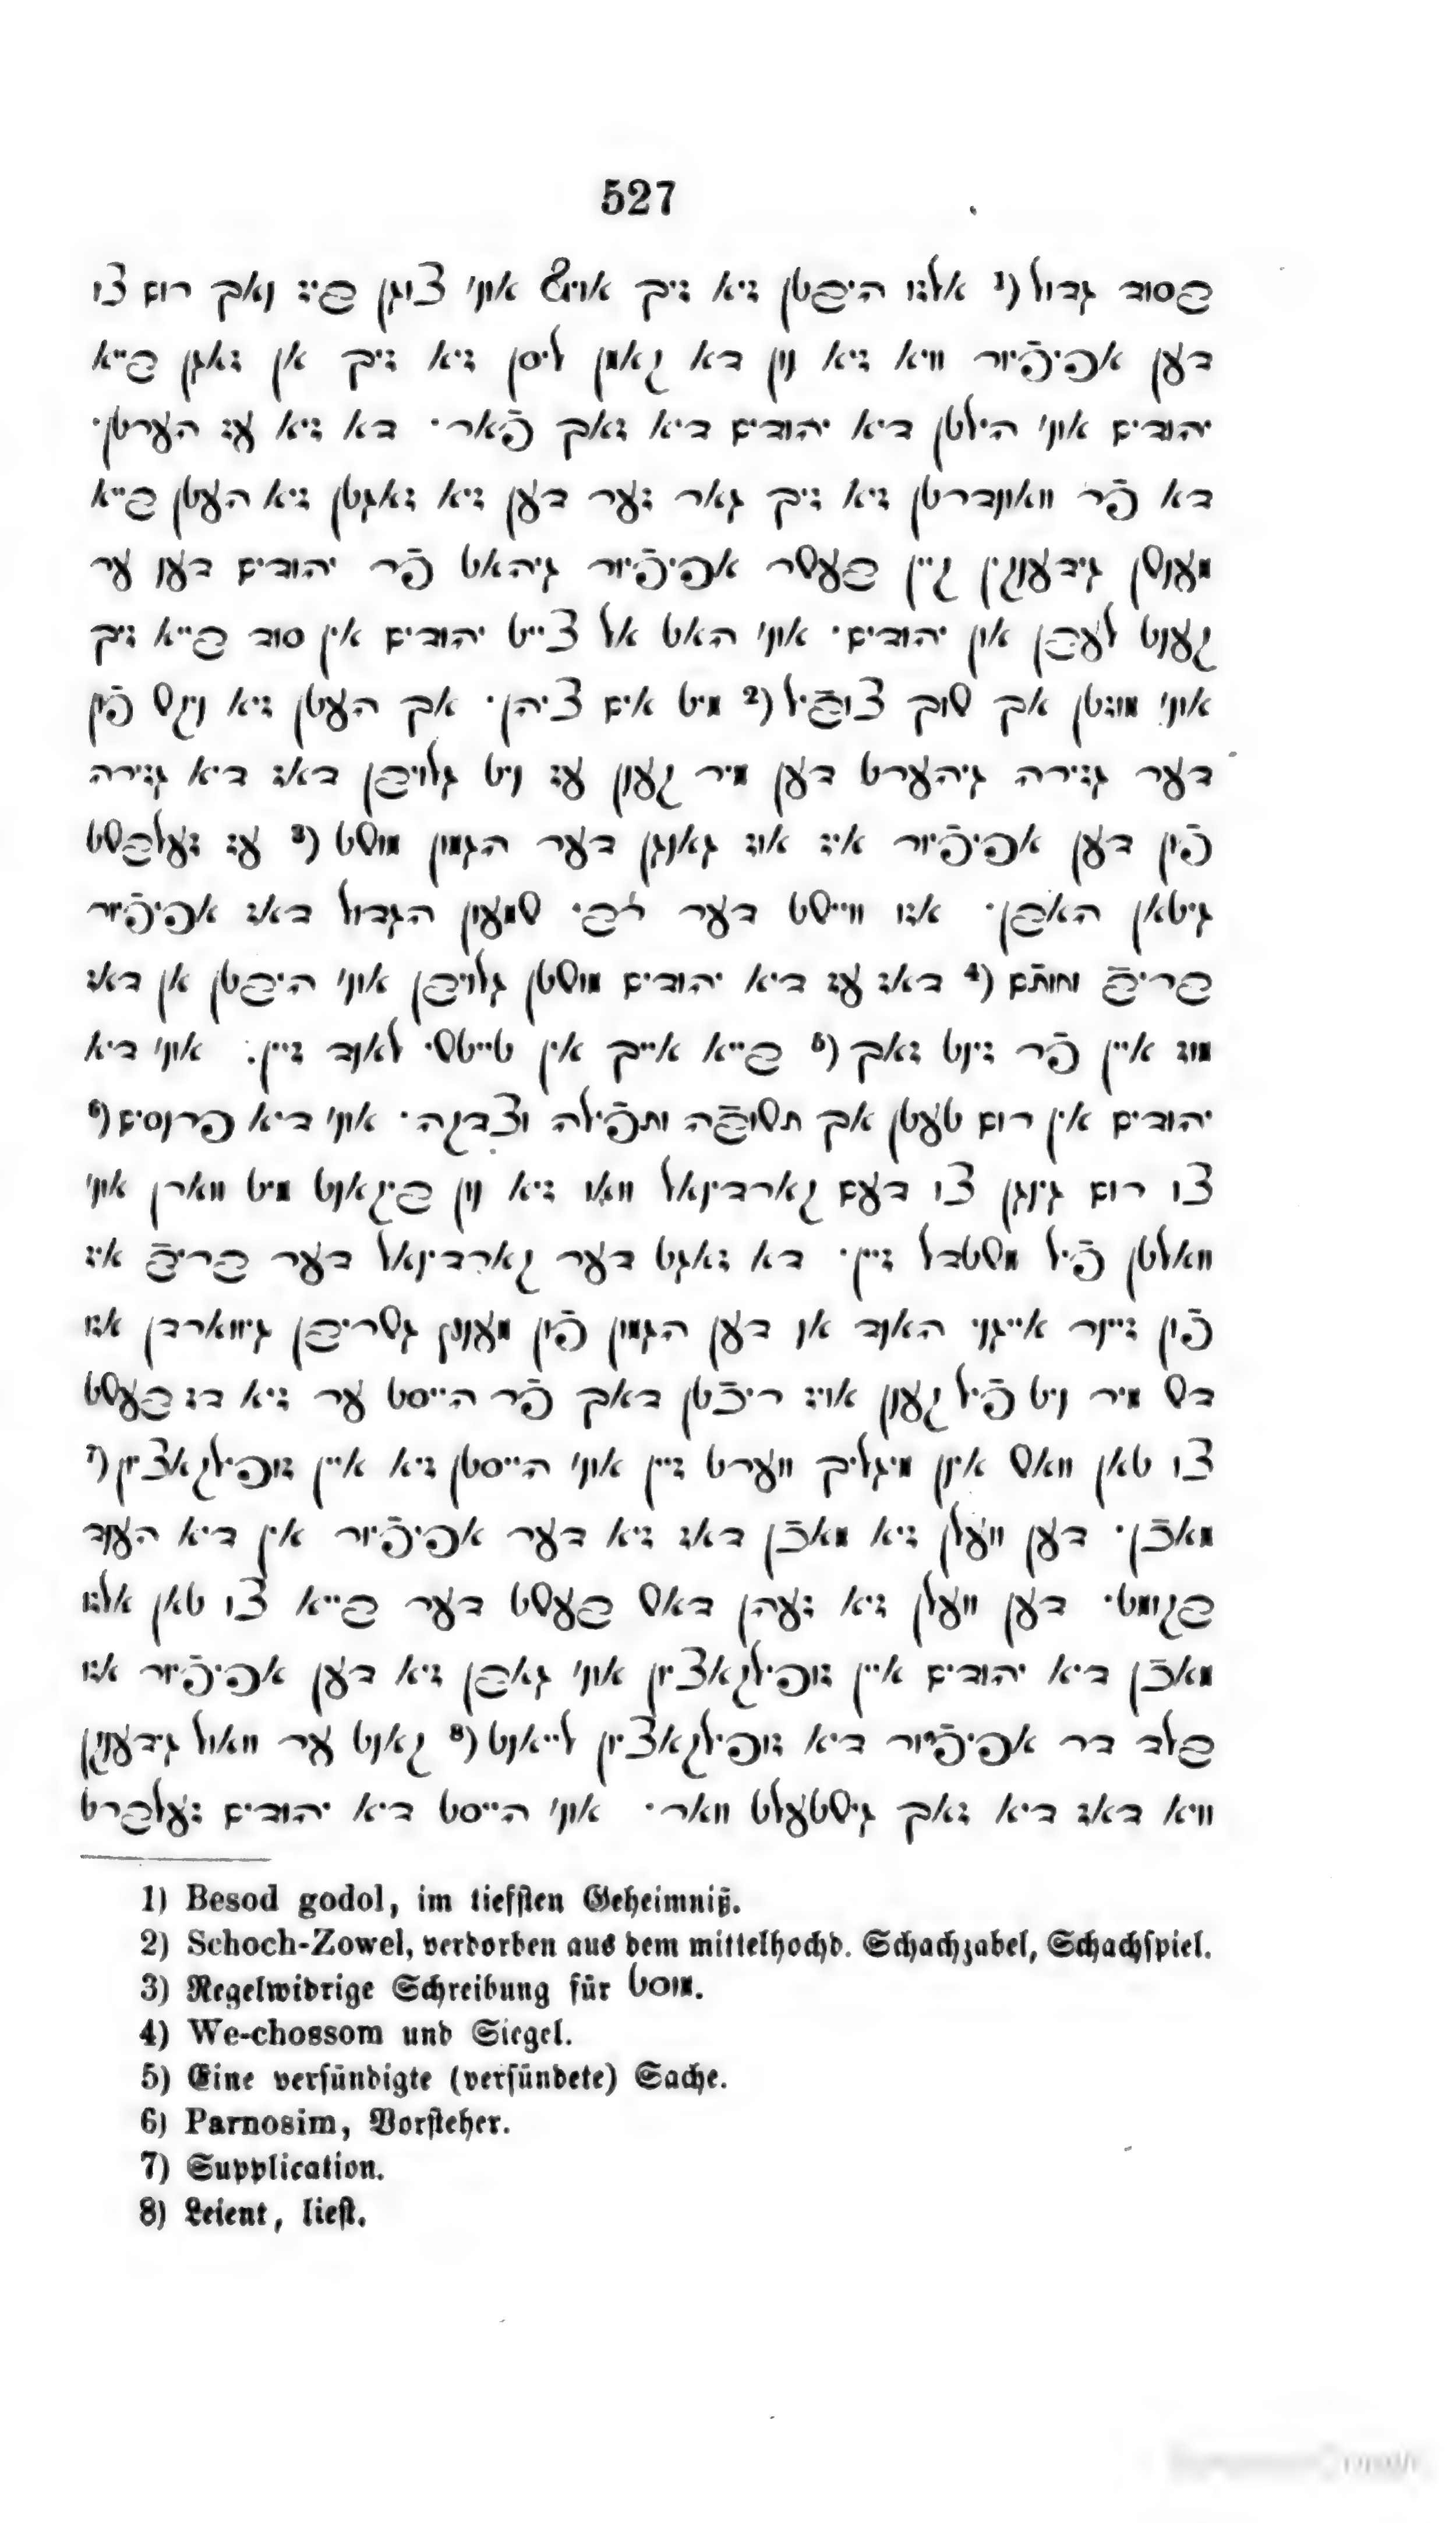 527
בסוד גדול (1 אלזו היבטן זיא זיך אויף אונ׳ צוגן ביז נאך רום צו
דען אפיפֿיור וויא זיא נון דא קאמן ליסן זיא זיך אן זאגן בייא
יהודים אונ׳ הילטן דיא יהודים דיא זאך פֿאר· דא זיא עז הערטן·
דא פֿר וואונדרטן זיא זיך גאר זער דען זיא זאגטן זיא העטן בייא
מענשן גידענקין קיין בעשר אפיפֿיור גיהאט פֿר יהודים דען ער
קענט לעבן און יהודים· אונ׳ האט אל צייט יהודים אין סוד בייא זיך
אונ׳ מוזטן אך שוך צובֿיל (2 מיט אים ציהן· אך העטן זיא ניקש פֿון
דער גזירה גיהערט דען מיר קענן עז ניט גלויבן דאז דיא גזירה
פֿון דען אפיפֿיור איז אוז גאנגן דער הגמון מושט (3 עז זעלבשט
גיטאן האבן· אזו וויישט דער רבי שמעון הגדול דאז אפיפֿיור
בריבֿ וחותֿם (4 דאז עז דיא יהודים מושטן גלויבן אונ׳ היבטן אן דאז
מוז איין פֿר זינט זאך (5 בייא אייך אין טייטש· לאנד זיין: אונ׳ דיא
יהודים אין רום טעטן אך תשובֿה ותפֿילה וצדקה· אונ׳ דיא פרנסים (6
צו רום גינגן צו דעם קארדינאל וואו זיא נון ביקאנט מיט ווארן אונ׳
וואלטן פֿיל משטדל זיין· דא זאגט דער קארדינאל דער בריבֿ איז
פֿון זיינר אייגני האנד אן דען הגמון פֿון מענץ גשריבן גיווארדן אזו
דש מיר ניט פֿיל קענן אויז ריכֿטן דאך פֿר הייסט ער זיא דז בעשט
צו טאן וואש אינן מיגליך ווערט זיין אונ׳ הייסטן זיא איין זופילקאציון (7
מאכֿן· דען וועלן זיא מאכֿן דאז זיא דער אפיפֿיור אין דיא הענד
בקומט· דען וועלן זיא זעהן דאש בעשט דער בייא צו טאן אלזו
מאכֿן דיא יהודים איין זופילקאציון אונ׳ גאבן זיא דען אפיפֿיור אזו
בלד דר אפיפֿיור דיא זופילקאציון לייאנט (8 קאנט ער וואול גידענקן
וויא דאז דיא זאך גישטעלט וואר· אונ׳ הייסט דיא יהודים זעלברט
1) Besod godol, im tiefsten Geheimniß.
2) Schoch-Zowel, verdorben aus dem mittelhochd. Schachzabel, Schachspiel.
3) Regelwidrige Schreibung für מוסט.
4) We-chossom und Siegel.
5) Eine versündigte (versündete) Sache.
6) Parnosim, Vorsteher.
7) Supplication.
8) Leient, liest.